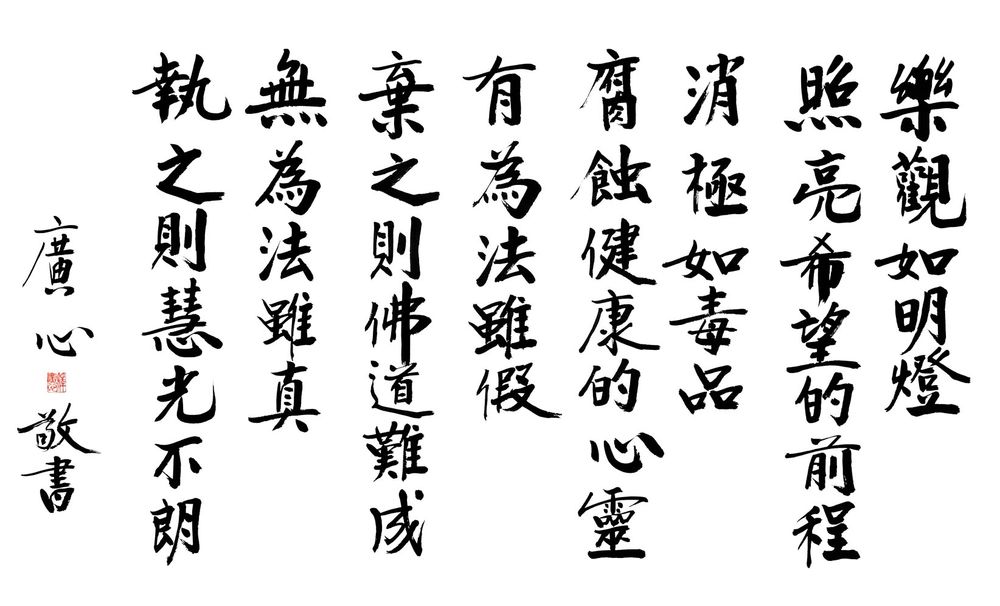 樂觀如明燈
照亮希望的前程
消極如毒品
腐蝕健康的心靈
有為法雖假
棄之則佛道難成
無為法雖真
執之則慧光不朗
廣心 敬書